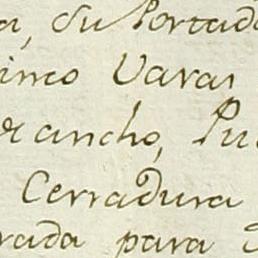 a, su Portad
inco Varas
ancho, Pu
Cerradura
rada para